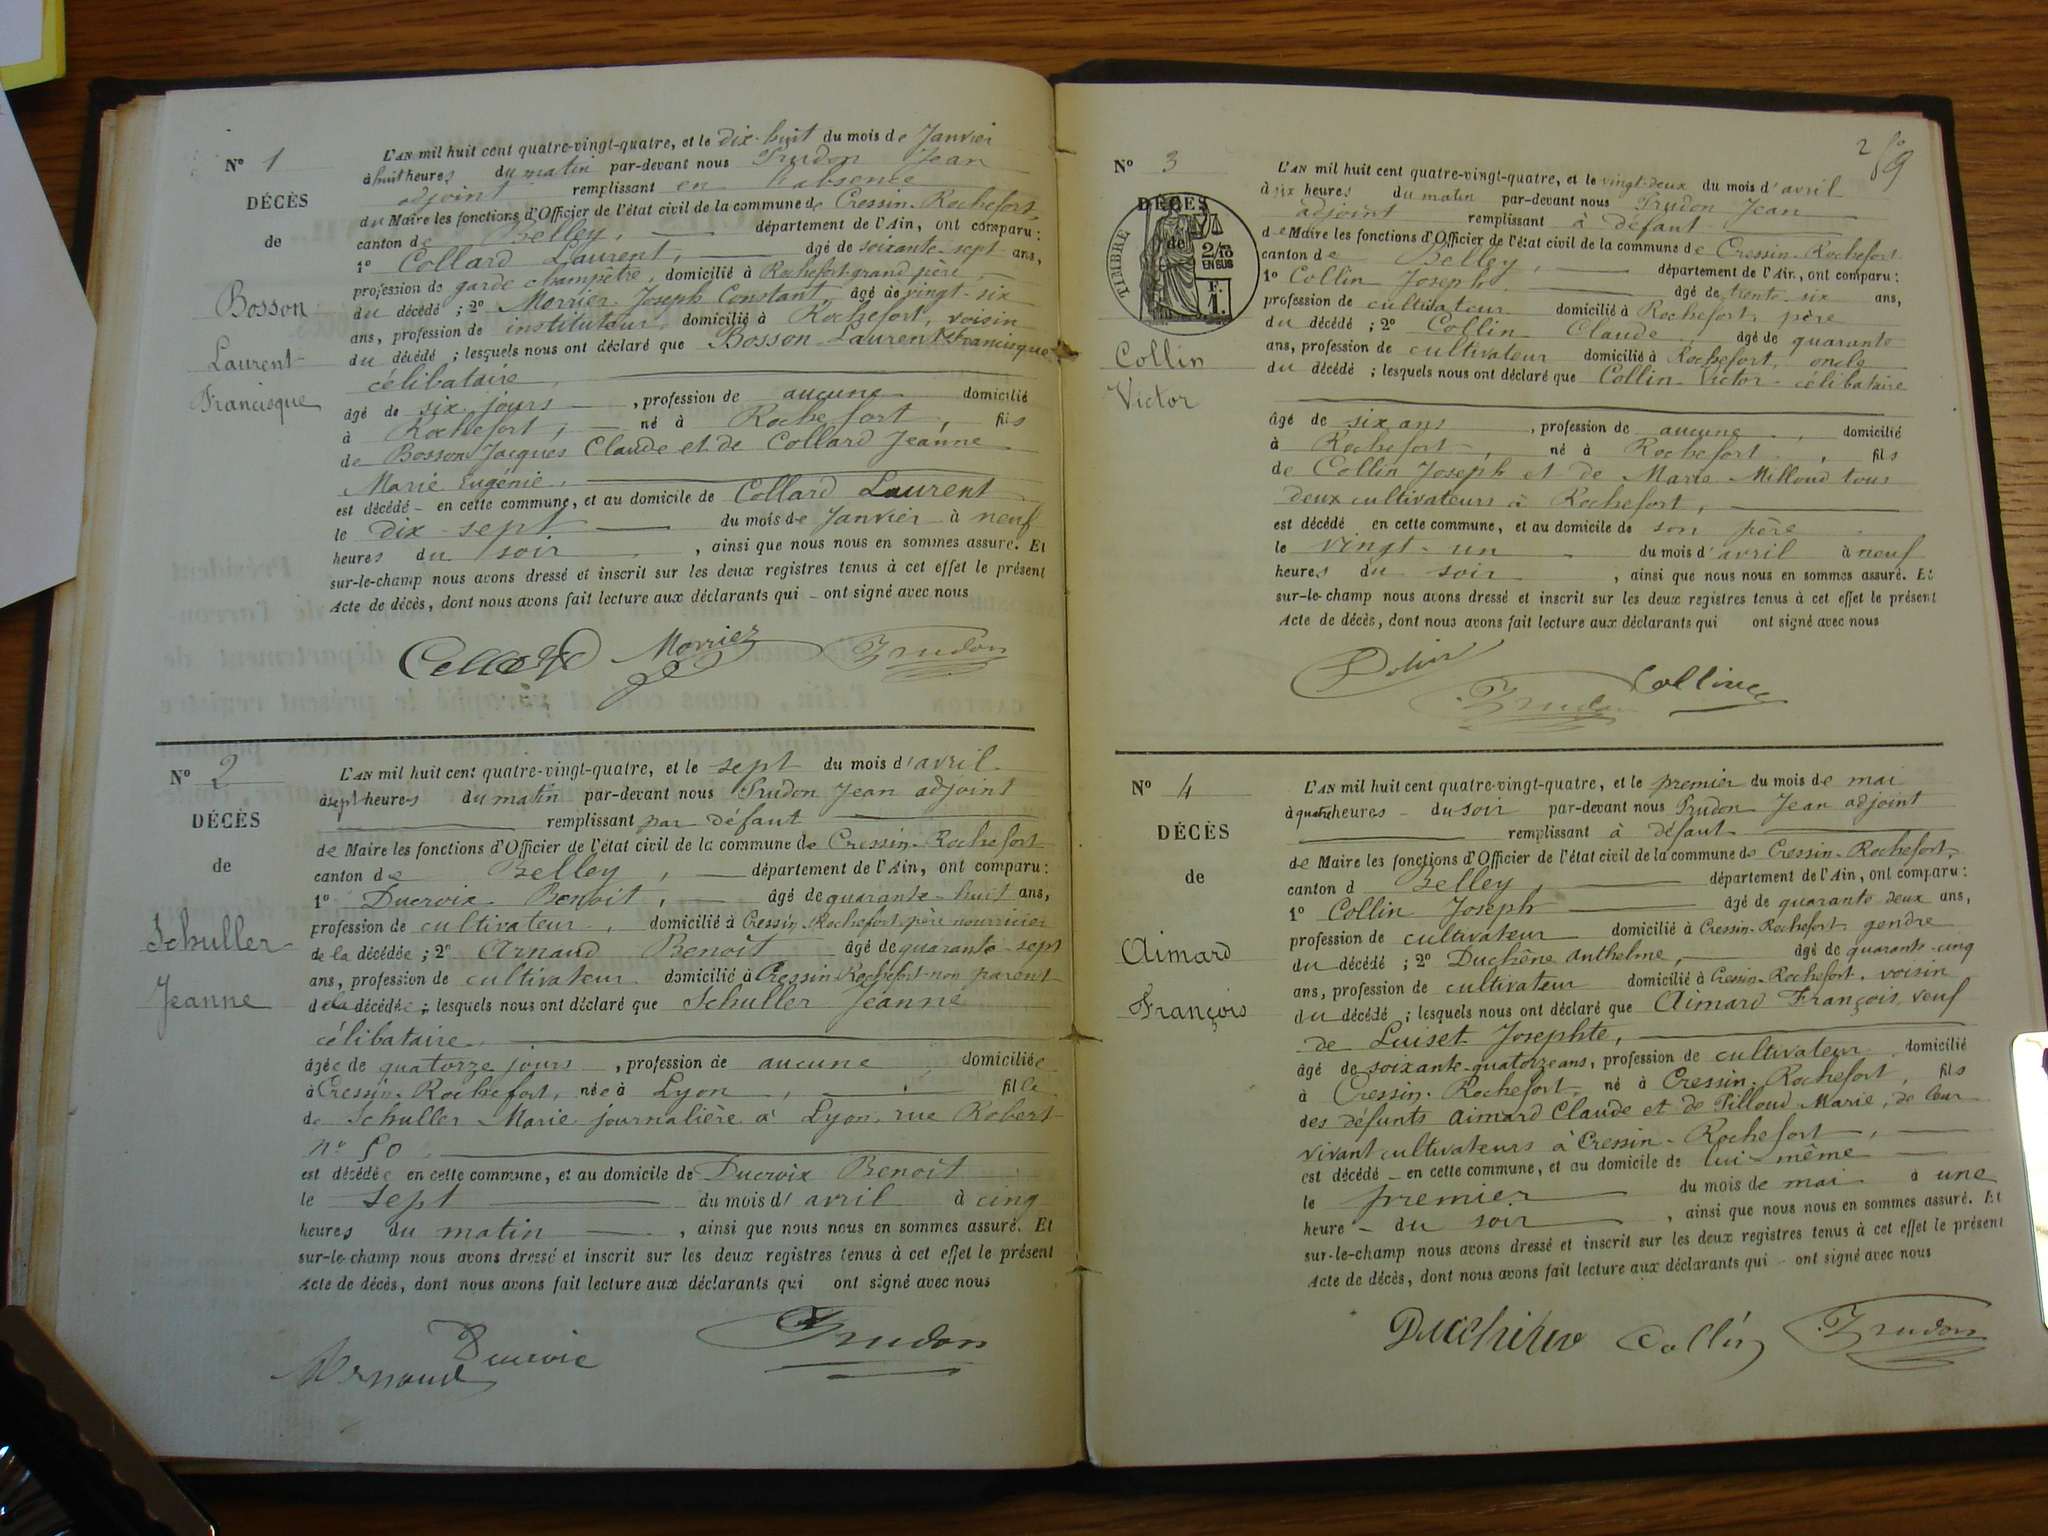 N° 1
DÉCÈS
de
Bosson
Laurent
Francisque
L'AN mil huit cent quatre-vingt-quatre, et le dix-huit du mois de Janvier
à huit heures du matin par-devant nous Prudon Jean
adjoint remplissant en l'absence
du Maire les fonctions d'Officier de l'état civil de la commune de Cressin-Rochefort,
canton de Belley, département de l'Ain, ont comparu :
1° Collard Laurent, âgé de soixante-sept ans,
profession de garde champêtre, domicilié à Rochefort grand père
du décédé ; 2° Morrier Joseph Constant, âgé de vingt-six
ans, profession de instituteur, domicilié à Rochefort, voisin
du décédé ; lesquels nous ont déclaré que Bosson Laurent Francisque
célibataire,
âgé de six jours, profession de aucune domicilié
à Rochefort, né à Rochefort, fils
de Bosson Jacques Claude et de Collard Jeanne
Marie Eugénie,
est décédé - en cette commune, et au domicile de Collard Laurent
le dix-sept du mois de Janvier à neuf
heures du soir, ainsi que nous nous en sommes assuré. Et
sur-le-champ nous avons dressé et inscrit sur les deux registres tenus à cet effet le présent
Acte de décès, dont nous avons fait lecture aux déclarants qui - ont signé avec nous
Morrier Prudon
N° 2
DÉCÈS
de
Schuller
Jeanne
L'AN mil huit cent quatre-vingt-quatre, et le sept du mois d'avril
à sept heures du matin par-devant nous Prudon Jean adjoint
remplissant par défaut
de Maire les fonctions d'Officier de l'état civil de la commune de Cressin-Rochefort
canton de Belley, département de l'Ain, ont comparu :
1° Ducroix Benoit, âgé de quarante-huit ans,
profession de cultivateur, domicilié à Cressin-Rochefort, père nourricier
de la décédée ; 2° Arnaud Benoit âgé de quarante-sept
ans, profession de cultivateur domicilié à Cressin-Rochefort non parent
de la décédée ; lesquels nous ont déclaré que Schuller Jeanne
célibataire
âgée de quatorze jours, profession de aucune domiciliée
à Cressin-Rochefort, née à Lyon, fille
de Schuller Marie journalière à Lyon, rue Robert
n° 50
est décédée en cette commune, et au domicile de Ducroix Benoit
le sept du mois d'avril à cinq
heures du matin, ainsi que nous nous en sommes assuré. Et
sur-le-champ nous avons dressé et inscrit sur les deux registres tenus à cet effet le présent
Acte de décès, dont nous avons fait lecture aux déclarants qui ont signé avec nous
Arnaud Prudon
N° 3
DÉCÈS
de
TIMBRE
2/10
EN SUS
F.
1.
Collin
Victor
L'AN mil huit cent quatre-vingt-quatre, et le vingt-deux du mois d'avril
à six heures du matin par-devant nous Prudon Jean
adjoint remplissant à défaut
de Maire les fonctions d'Officier de l'état civil de la commune de Cressin-Rochefort
canton de Belley, département de l'Ain, ont comparu :
1° Collin Joseph âgé de trente-six ans,
profession de cultivateur domicilié à Rochefort, père
du décédé ; 2° Collin Claude, âgé de quarante
ans, profession de cultivateur domicilié à Rochefort, oncle
du décédé ; lesquels nous ont déclaré que Collin Victor célibataire
âgé de six ans, profession de aucune, domicilié
à Rochefort, né à Rochefort, fils
de Collin Joseph et de Marie Milloud tous
deux cultivateurs à Rochefort,
est décédé en cette commune, et au domicile de son père
le vingt-un du mois d'avril à neuf
heures du soir, ainsi que nous nous en sommes assuré. Et
sur-le-champ nous avons dressé et inscrit sur les deux registres tenus à cet effet le présent
Acte de décès, dont nous avons fait lecture aux déclarants qui ont signé avec nous
Prudon
N° 4
DÉCÈS
de
Aimard
François
L'AN mil huit cent quatre-vingt-quatre, et le premier du mois de mai
à quatre heures - du soir par-devant nous Prudon Jean adjoint
remplissant à défaut
de Maire les fonctions d'Officier de l'état civil de la commune de Cressin-Rochefort,
canton d Belley, département de l'Ain, ont comparu :
1° Collin Joseph âgé de quarante deux ans,
profession de cultivateur domicilié à Cressin-Rochefort gendre
du décédé ; 2° Duchêne Anthelme, âgé de quarante-cinq
ans, profession de cultivateur domicilié à Cressin-Rochefort, voisin
du décédé ; lesquels nous ont déclaré que Aimard François, veuf
de Luiset Josephte,
âgé de soixante-quatorze ans, profession de cultivateur, domicilié
à Cressin-Rochefort, né à Cressin-Rochefort, fils
des défunts Aimard Claude et de Pilloud Marie, de leur
vivant cultivateurs à Cressin-Rochefort,
est décédé - en cette commune, et au domicile de lui-même
le premier du mois de mai à une
heure - du soir, ainsi que nous nous en sommes assuré. Et
sur-le-champ nous avons dressé et inscrit sur les deux registres tenus à cet effet le présent
Acte de décès, dont nous avons fait lecture aux déclarants qui - ont signé avec nous
Collin Prudon